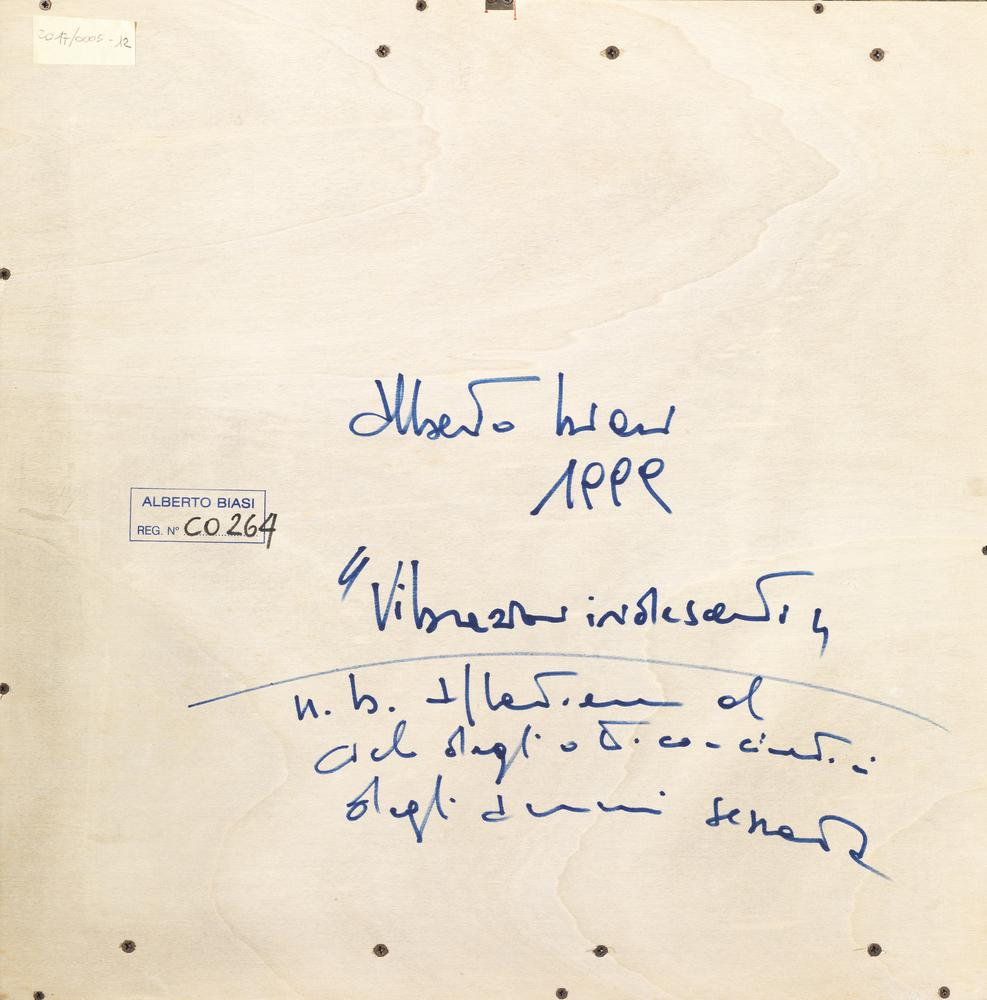 2017/0005-12
Alberto Biasi
1999
ALBERTO BIASI
REG. N° CO 264
"Vibrazioni iridescenti"
n. b. al
ciclo degli ottico-cinetici
degli anni sessanta